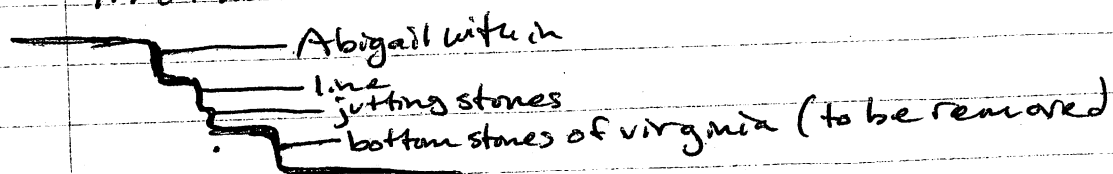 Abigail within
line
jutting stones
bottom stones of virginia (to be removed